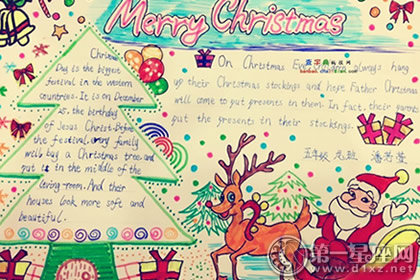 Merry Christmas
Christmas
Day is the biggest
festival in the western
countries. It is on December
is the birthday
of Jesus Christ. Before
the festival, every family
will buy a Christmas tree and
put it in the middle of the
living-room. And their
houses look more soft and
beautiful.
On Christmas Eve always hang
up their Christmas stockings and hope Father Christmas
will come to put presents in them. In fact, their parents
put the presents in their stockings.
五年级
第一星座网
www.d1xz.net